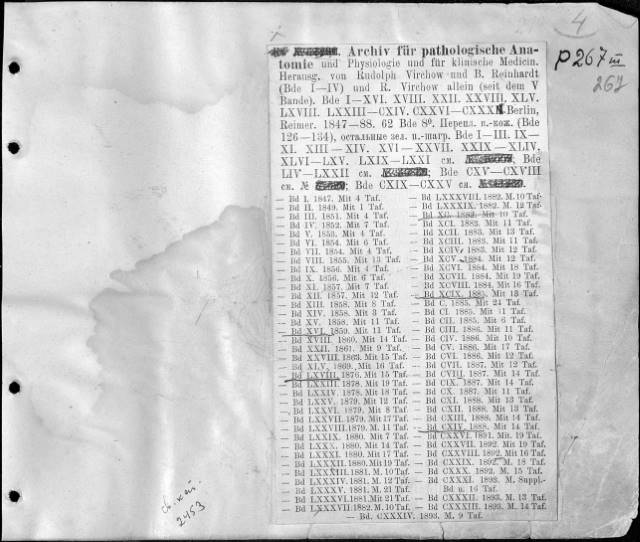 4
р267 III
267
Archiv für pathologische Ana-
tomie und Physiologie und für klinische Medicin.
Herausg. von Rudolph Virchow und B. Reinhardt
(Bde I—IV) und R. Virchow allein (seit dem V
Bande). Bde I—XVI. XVIII. XXII. XXVIII. XLV.
LXVIII. LXXIII—CIV. CXXVI—CXXXI. Berlin,
Reimer. 1847—88. 62 Bde 8º. Перепл. п.-кож. (Bde
126—134), остальные зел. п.-шагр. Bde I—III. IX—
XI. XIII—XIV. XVI—XXVII. XXIX—XLIV.
XLVI—LXV. LXIX—LXXI см. Bde
LIV—LXXII см. Bde CXV—CXVIII
см. № ; Bde CXIX—CXXV см.
— Bd I. 1847. Mit 4 Taf.
— Bd II. 1849. Mit 1 Taf.
— Bd III. 1851. Mit 4 Taf.
— Bd IV. 1852. Mit 7 Taf.
— Bd V. 1853. Mit 4 Taf.
— Bd VI. 1854. Mit 6 Taf.
— Bd VII. 1854. Mit 4 Taf.
— Bd VIII. 1855. Mit 13 Taf.
— Bd IX. 1856. Mit 4 Taf.
— Bd X. 1856. Mit 6 Taf.
— Bd XI. 1857. Mit 7 Taf.
— Bd XII. 1857. Mit 12 Taf.
— Bd XIII. 1858. Mit 8 Taf.
— Bd XIV. 1858. Mit 3 Taf.
— Bd XV. 1858. Mit 11 Taf.
— Bd XVI. 1859. Mit 11 Taf.
— Bd XVIII. 1860. Mit 14 Taf.
— Bd XXII. 1861. Mit 9 Taf.
— Bd XXVIII. 1863. Mit 15 Taf.
— Bd XLV. 1869. Mit 16 Taf.
— Bd LXVIII. 1876. Mit 15 Taf.
— Bd LXXIII. 1878. Mit 19 Taf.
— Bd LXXIV. 1878. Mit 18 Taf.
— Bd LXXV. 1879. Mit 12 Taf.
— Bd LXXVI. 1879. Mit 8 Taf.
— Bd LXXVII. 1879. Mit 17 Taf.
— Bd LXXVIII. 1879. M. 11 Taf.
— Bd LXXIX. 1880. Mit 7 Taf.
— Bd LXXX. 1880. Mit 14 Taf.
— Bd LXXXI. 1880. Mit 17 Taf.
— Bd LXXXII. 1880. Mit 19 Taf.
— Bd LXXXIII. 1881. M. 10 Taf.
— Bd LXXXIV. 1881. M. 12 Taf.
— Bd LXXXV. 1881. M. 21 Taf.
— Bd LXXXVI. 1881. Mit 21 Taf.
— Bd LXXXVII. 1882. M. 10 Taf.
— Bd LXXXVIII. 1882. M. 10 Taf.
— Bd LXXXIX. 1882. M. 12 Taf.
— Bd XC. 1882. Mit 10 Taf.
— Bd XCI. 1883. Mit 11 Taf.
— Bd XCII. 1883. Mit 13 Taf.
— Bd XCIII. 1883. Mit 11 Taf.
— Bd XCIV. 1883. Mit 12 Taf.
— Bd XCV. 1884. Mit 12 Taf.
— Bd XCVI. 1884. Mit 18 Taf.
— Bd XCVII. 1884. Mit 19 Taf.
— Bd XCVIII. 1884. Mit 16 Taf.
— Bd XCIX. 1885. Mit 13 Taf.
— Bd C. 1885. Mit 24 Taf
— Bd CI. 1885. Mit 11 Taf.
— Bd CII. 1885. Mit 6 Taf.
— Bd CIII. 1886. Mit 11 Taf.
— Bd CIV. 1886. Mit 10 Taf.
— Bd CV. 1886. Mit 17 Taf.
— Bd CVI. 1886. Mit 12 Taf.
— Bd CVII. 1887. Mit 12 Taf.
— Bd CVIII. 1887. Mit 14 Taf.
— Bd CIX. 1887. Mit 14 Taf.
— Bd CX. 1887. Mit 11 Taf.
— Bd CXI. 1888. Mit 13 Taf.
— Bd CXII. 1888. Mit 13 Taf.
— Bd CXIII. 1888. Mit 14 Taf.
— Bd CXIV. 1888. Mit 14 Taf.
— Bd CXXVI. 1891. Mit 19 Taf.
— Bd CXXVII. 1892. Mit 19 Taf.
— Bd CXXVIII. 1892. Mit 16 Taf.
— Bd CXXIX. 1892. M. 18 Taf.
— Bd CXXX. 1892. M. 15 Taf.
— Bd CXXXI. 1893. M. Suppl.-
Bd u. 16 Taf.
— Bd CXXXII. 1893. M. 13 Taf.
— Bd CXXXIII. 1893. M. 14 Taf.
— Bd. CXXXIV. 1893. M. 9 Taf.
2453